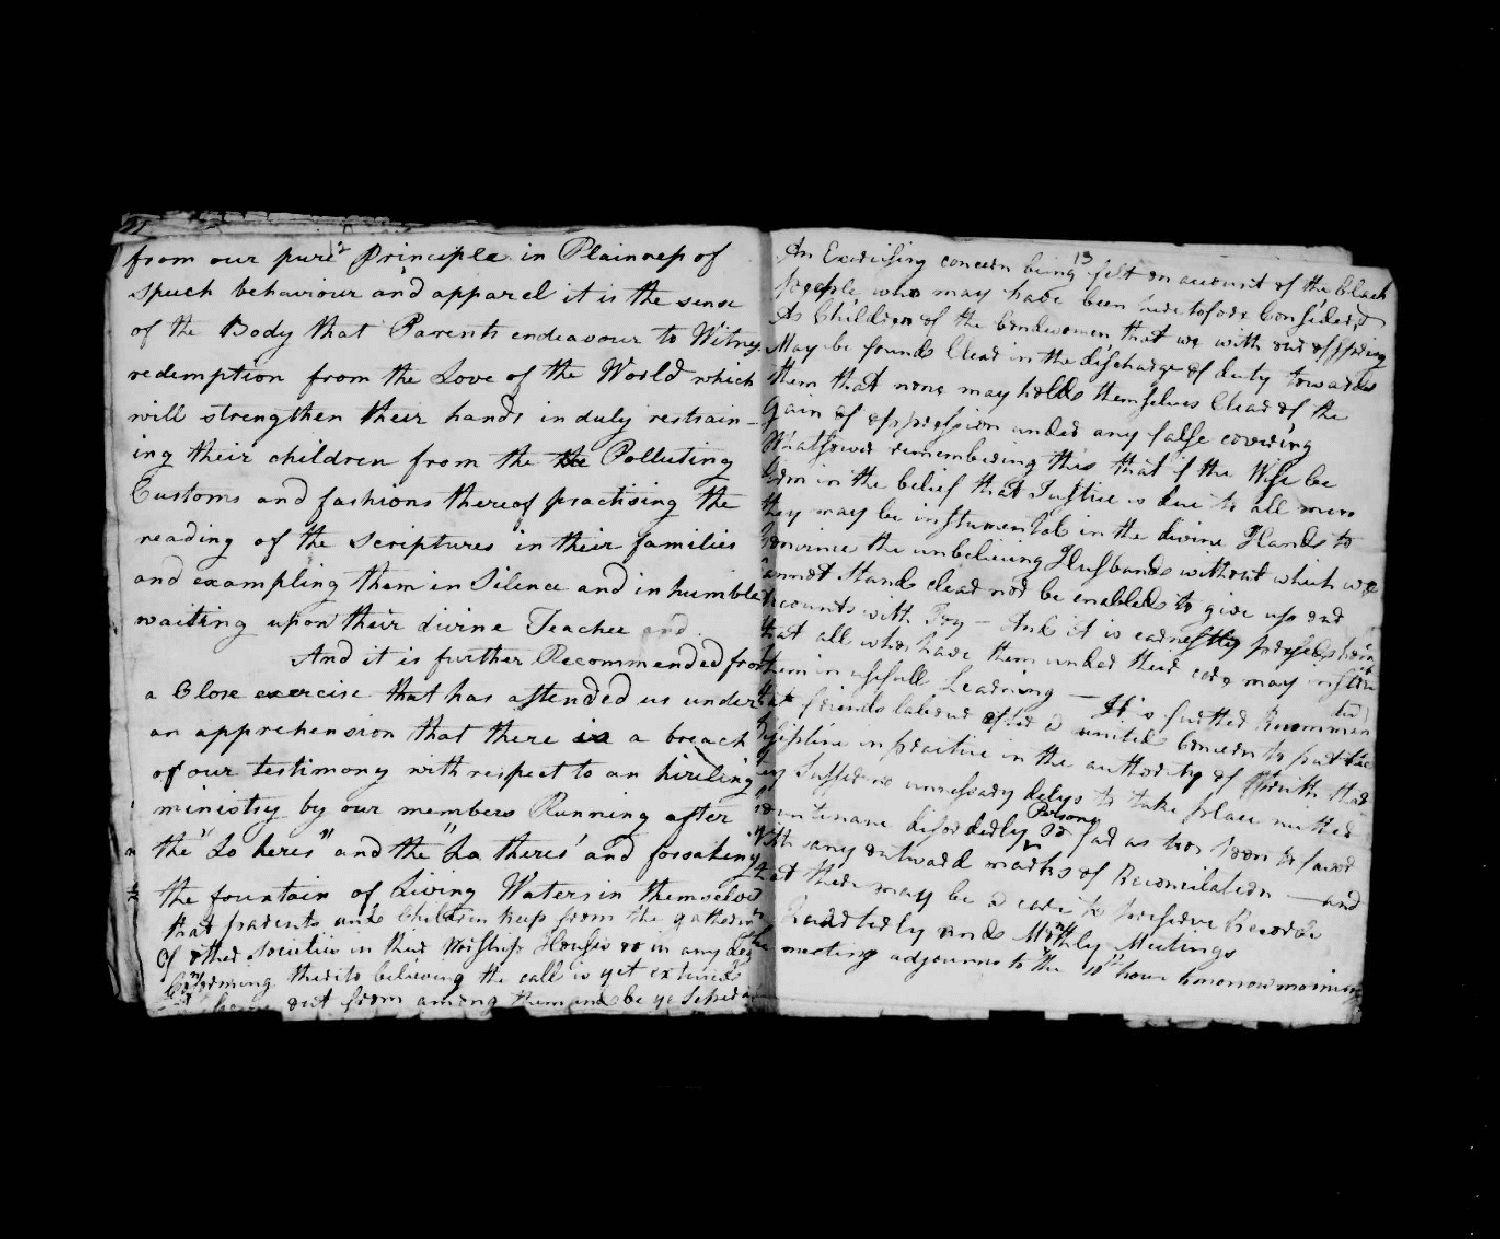 12
from our pure Principle in Plainness of
speech behaviour and apparel it is the sense
of the Body that Parents endeavour to Witness
redemption from the Love of the World which
will strengthen their hands in duly restrain-
ing their children from the the Polluting
Customs and fashions thereof practising the
reading of the Scriptures in their families
and exampling them in Silence and in humble
waiting upon their divine Teacher and
And it is further Recommended from
a Close exercise that has attended us under
an apprehension that there is a breach
of our testimony with respect to an hireling
ministry by our members Running after
the "Lo heres" and the "Lo theres" and forsaking
the fountain of Living Waters in themselves
that parents and Children keep from the gatherings
of other societies in their Worship Houses or in any
thereto believing the call is yet extended
out from among them and be ye
13
An Exercising concern being felt on account of the black
people who may have been heretofore Considered
As Children of the bondwoman, that we with our offspring
May be found Clear in the discharge of duty towards
them that none may hold themselves Clear of the
Gain of oppression under any false covering
Whatsoever remembering this that if the Wife be
firm in the belief that Justice is due to all men
they may be instrumental in the divine Hand to
convince the unbelieving Husband without which we
cannot Stand clear nor be enabled to give up our
accounts with Joy — And it is earnestly
that all who have them under their care may
them in usefull Learning — It is further Recommen
ded
that friends labour after a united Concern to put the
discipline in practice in the authority of Truth that
they Suffer no unnessary delays to take place neither
countenance disorderly Persons so far as too soon to favor
with any outward marks of Reconcilation — and
that there may be a care to preserve Records
Quarterly and Monthly Meetings
meeting adjourns to the 10th hour tomorrow morning